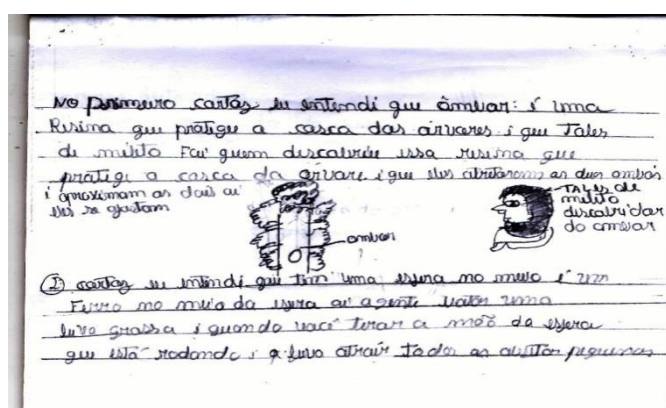 No primeiro cartaz eu entendi que âmbar: é uma
Resina que protige a casca das árvores i que Tales
de mileto Foi quem descobriu essa resina que
protige a casca da árvore i que eles atritaram as dois ambos
i aproximam as dois ai
eles se afastam
ambar
TALES de
mileto
discobridor
do ambar
2) cartaz eu entendi qui tem uma esfera no meio é um
Ferro no meio da esfera ai agente
luva grossa i quando você tirar a mão da esfera
que está rodando a luva atrair todos os pequenos